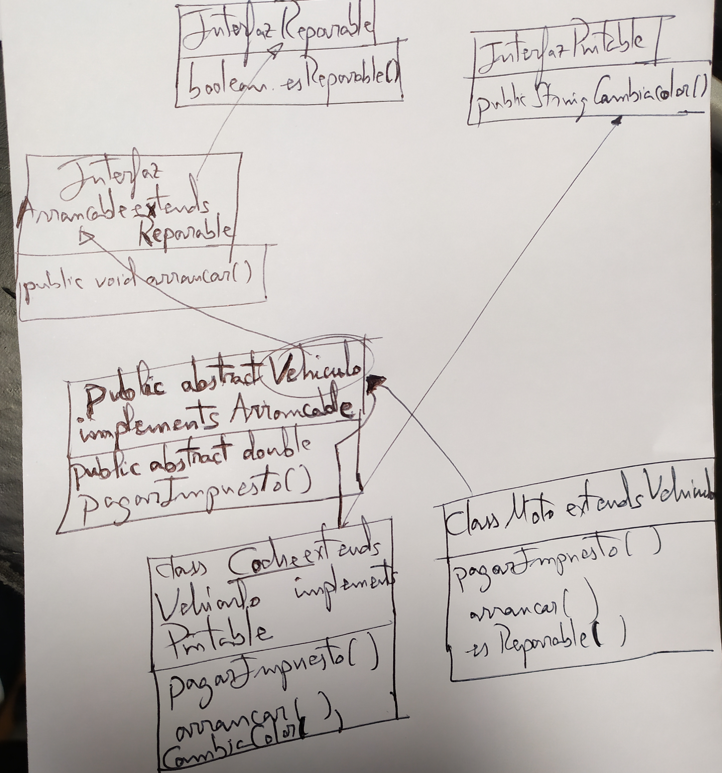 Interfaz Reparable
boolean esReparable()
Interfaz Pintable
public String CambiaColor()
Interfaz
Arrancable extends
Reparable
public void arrancar()
Public abstract Vehiculo
implements Arrancable
public abstract double
pagarImpuesto()
Class Coche extends
Vehiculo implements
Pintable
pagarImpuesto()
arrancar()
CambiaColor()
Class Moto extends Vehiculo
pagarImpuesto()
arrancar()
esReparable()